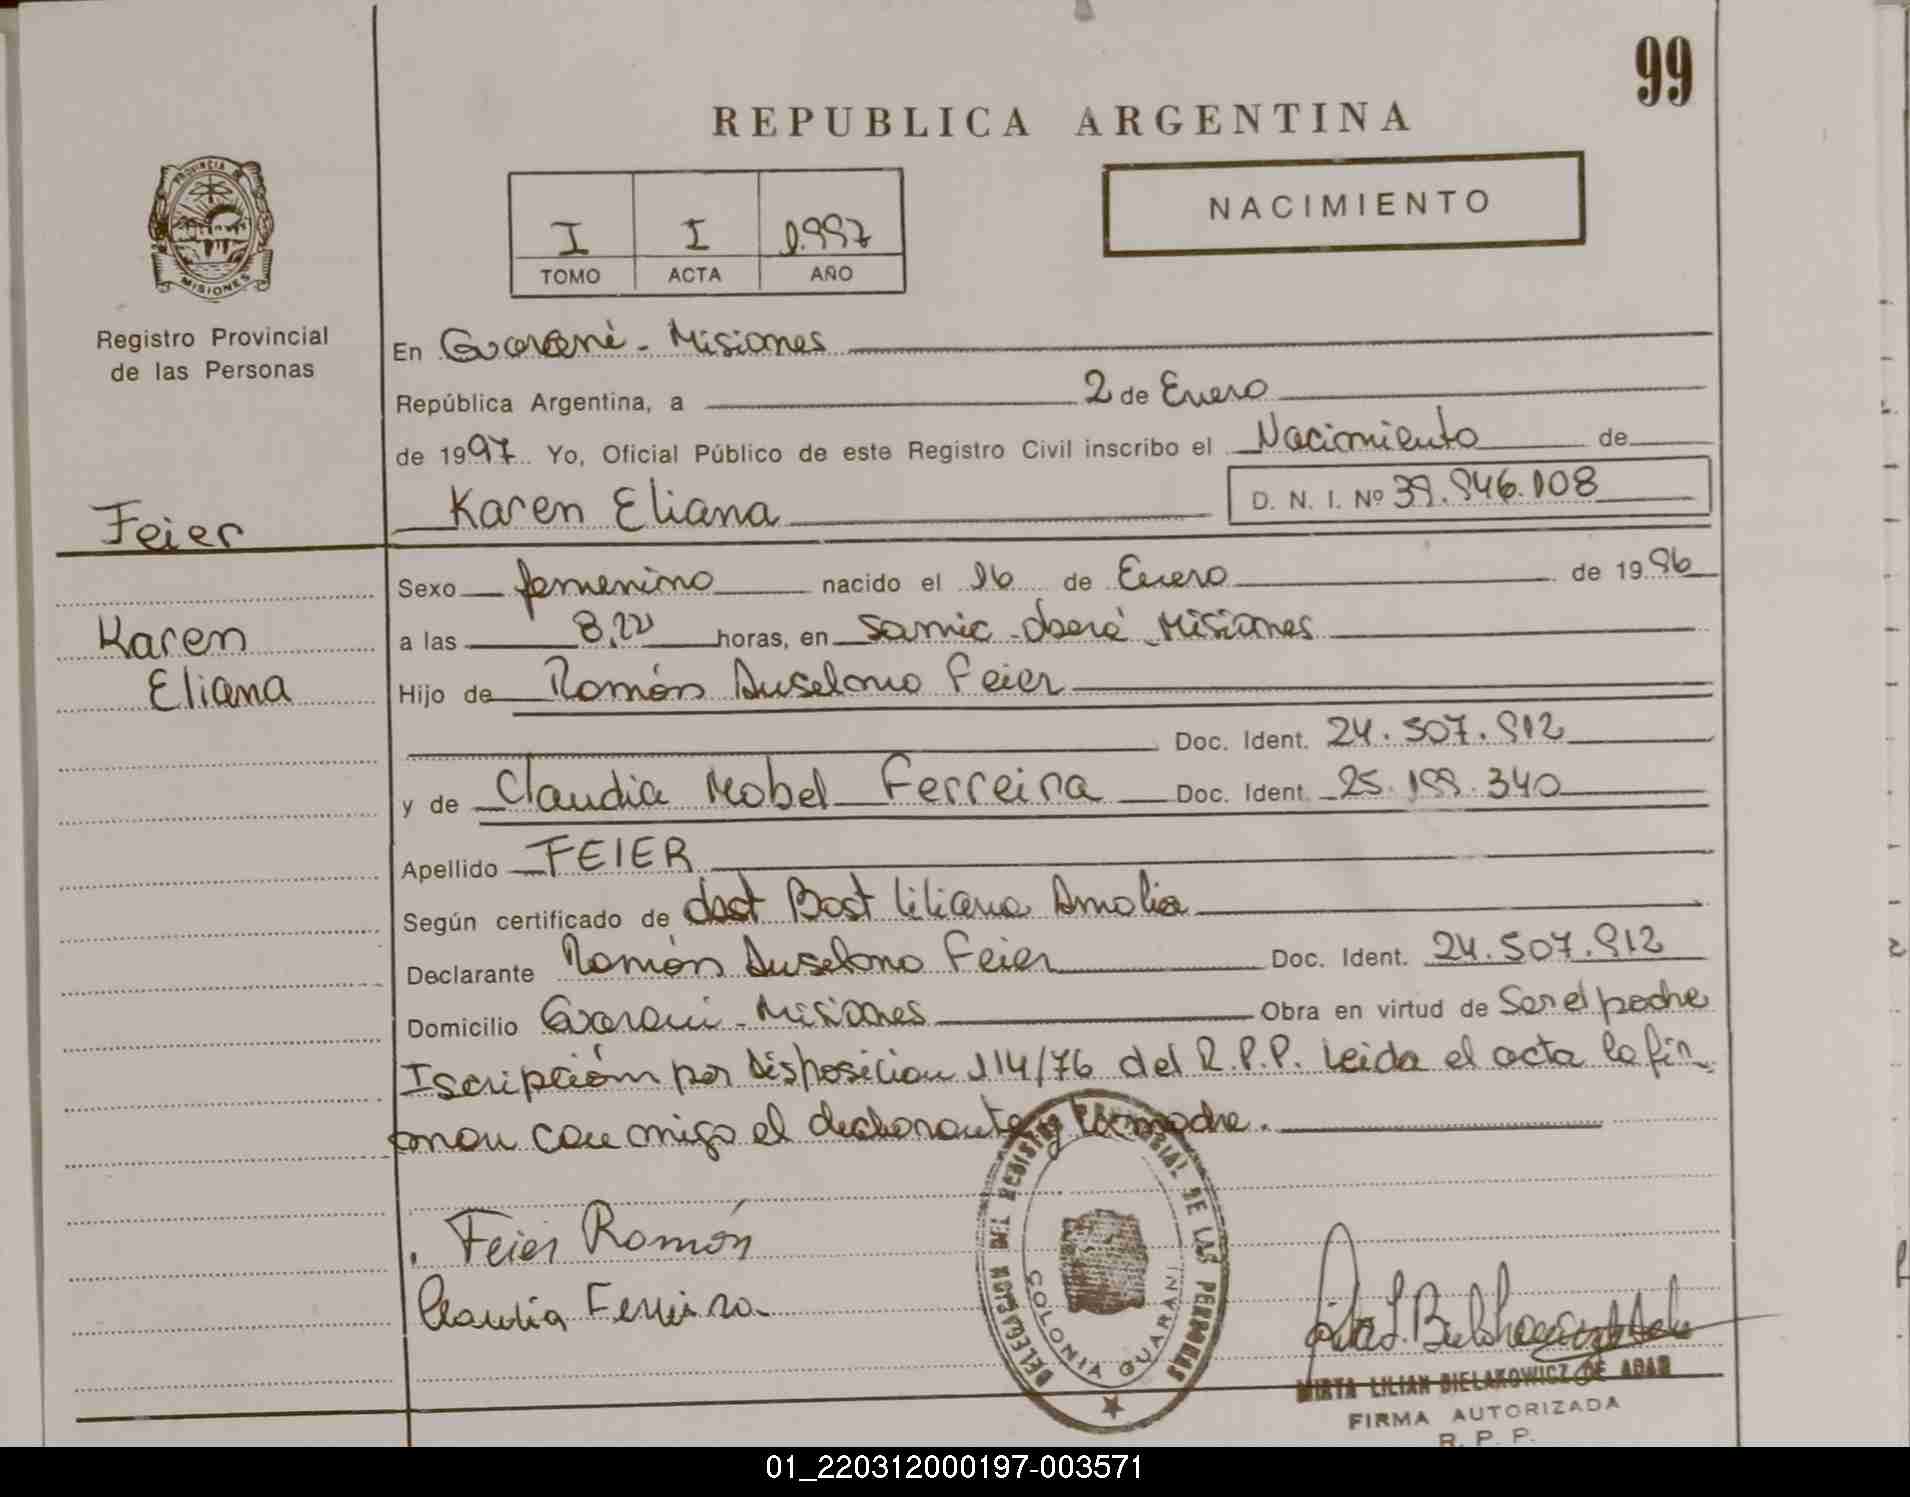 99
REPUBLICA ARGENTINA
PROVINCIA DE
MISIONES
NACIMIENTO
I I 1.997
TOMO ACTA AÑO
Registro Provincial
de las Personas
En Guaraní - Misiones
República Argentina, a 2 de Enero
de 1997 Yo, Oficial Público de este Registro Civil inscribo el Nacimiento de
Karen Eliana D. N. I. Nº 39.946.108
Feier
Sexo femenino nacido el 16 de Enero de 1996
Karen
a las 8,20 horas, en Samic - Oberá - Misiones
Eliana
Hijo de Román Anselmo Feier
Doc. Ident. 24.507.912
y de Claudia Mabel Ferreira Doc. Ident. 25.199.340
Apellido FEIER
Según certificado de Obst Bast Liliana Amalia
Declarante Román Anselmo Feier Doc. Ident. 24.507.912
Domicilio Guarani - Misiones Obra en virtud de Ser el padre
Iscripción por Disposicion 114/76 del R.P.P. Leida el acta la fir-
man con migo el declarante y la madre.
Feier Román
Claudia Ferreira
DELEGACION DEL REGISTRO PROVINCIAL DE LAS PERSONAS
COLONIA GUARANI
MIRTA LILIAN BIELAKOWICZ DE ADAM
FIRMA AUTORIZADA
R. P. P.
01_220312000197-003571